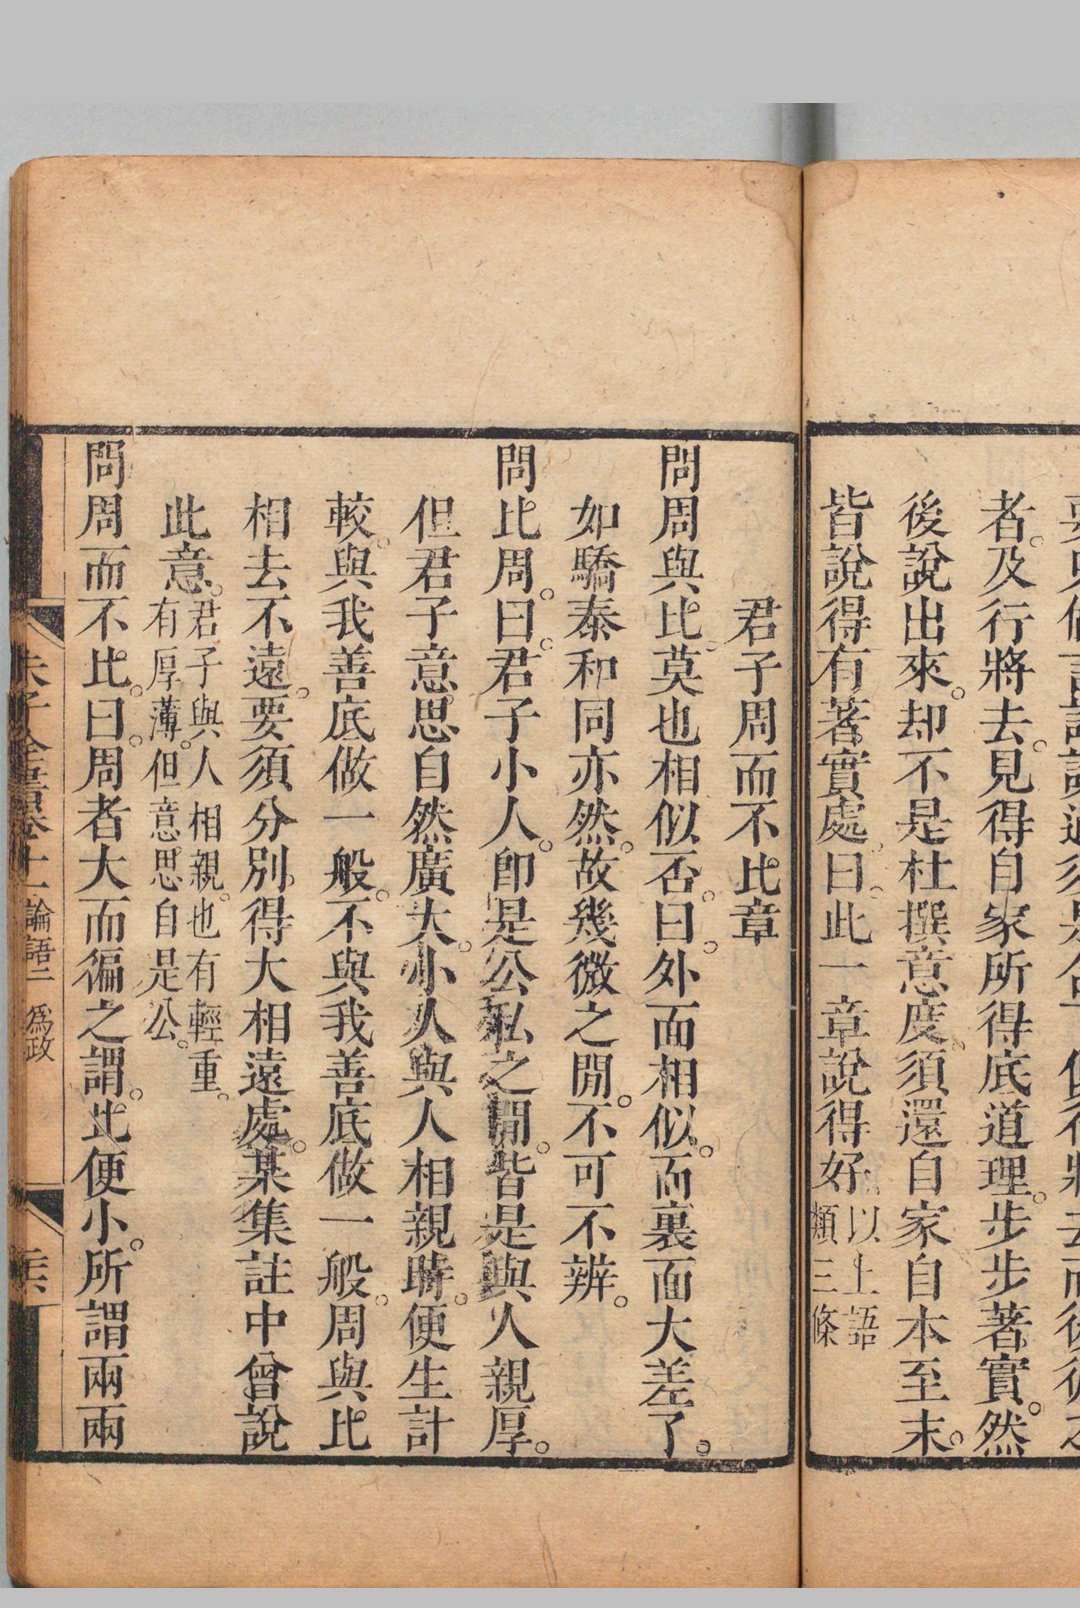 者及行將去見得自家所得底道理步步著實然
後說出來却不是杜撰意度須還自家自本至末
皆說得有著實處曰此一章說得好以上語
類三條
君子周而不比章
問周與比莫也相似否曰外面相似而裏面大差了
如驕泰和同亦然故幾微之閒不可不辨
問比周曰君子小人卽是公私之閒皆是與人親厚
但君子意思自然廣大小人與人相親時便生計
較與我善底做一般不與我善底做一般周與比
相去不遠要須分別得大相遠處某集註中曾說
此意君子與人相親也有輕重
有厚薄但意思自是公
問周而不比曰周者大而徧之謂比便小所謂兩兩
朱子全書卷十一論語二 爲政